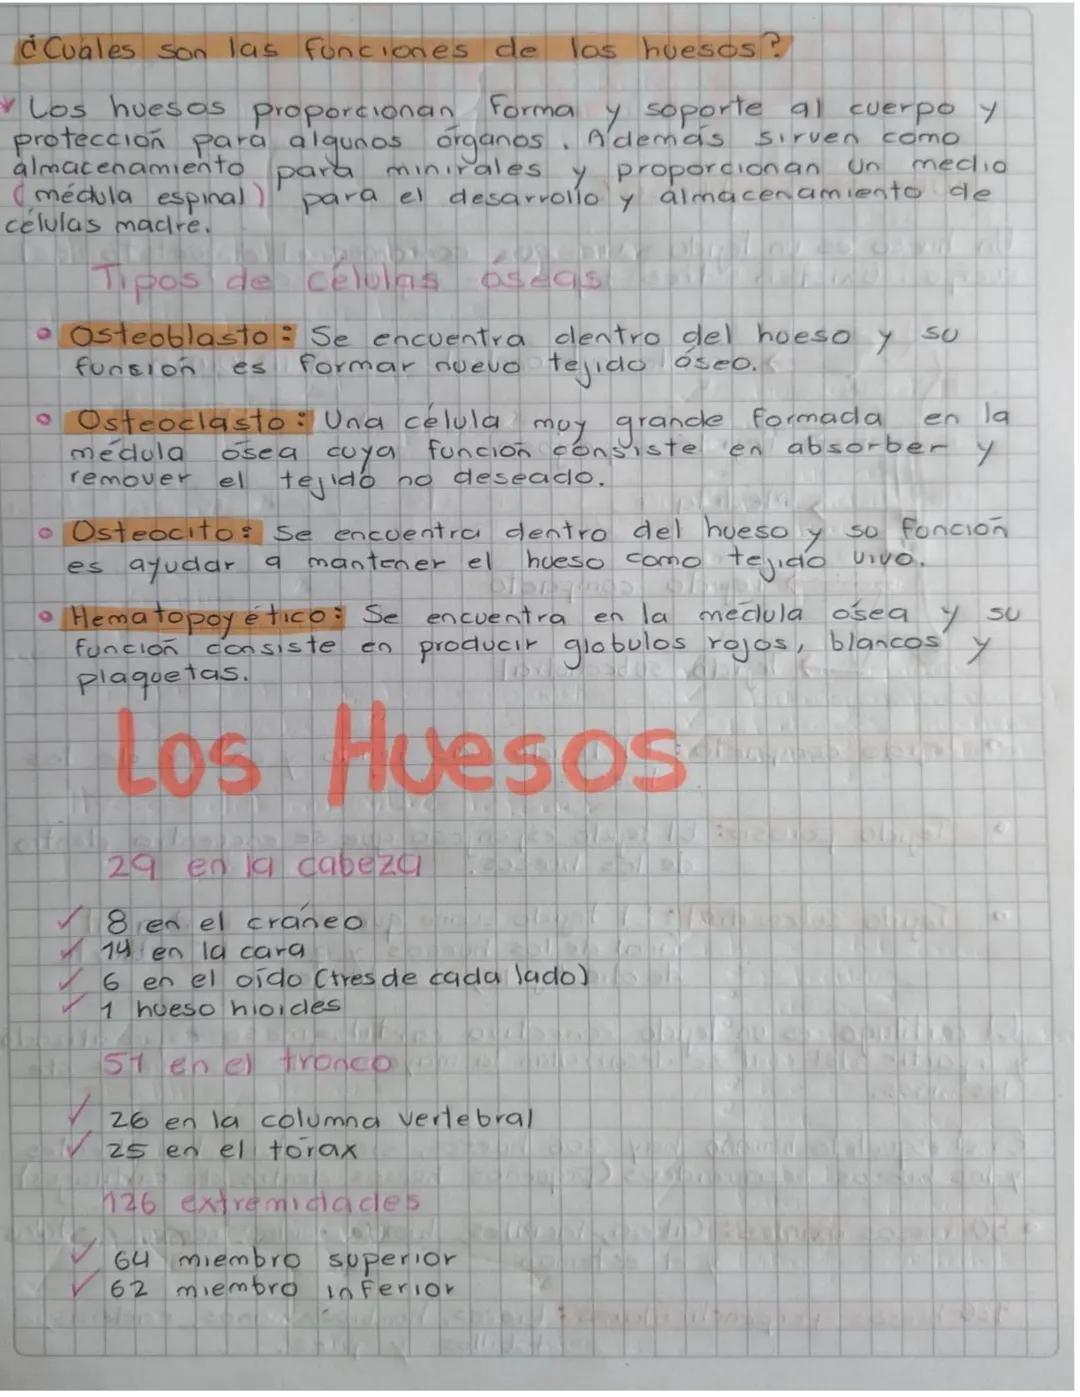 ¿Cuáles son las funciones de los huesos?
Los huesos proporcionan forma y soporte al cuerpo y
protección para algunos órganos. Además sirven como
almacenamiento para minirales y proporcionan un medio
(médula espinal) para el desarrollo y almacenamiento de
células madre.
Tipos de células óseas
Osteoblasto: Se encuentra dentro del hueso y su
función es formar nuevo tejido óseo.
Osteoclasto: Una célula muy grande formada en la
médula ósea cuya función consiste en absorber y
remover el tejido no deseado.
Osteocito: Se encuentra dentro del hueso y su función
es ayudar a mantener el hueso como tejido vivo.
Hematopoyético: Se encuentra en la médula ósea y su
función consiste en producir globulos rojos, blancos y
plaquetas.
Los Huesos
29 en la cabeza
8 en el cráneo
14 en la cara
6 en el oído (tres de cada lado)
1 hueso hioides
51 en el tronco
26 en la columna vertebral
25 en el tórax
126 extremidades
64 miembro superior
62 miembro inferior